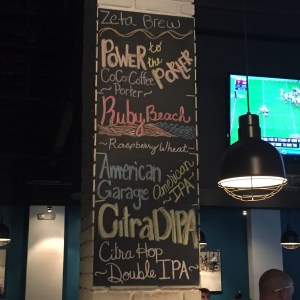 Zeta Brew
POWER to the
PORTER
CoCo Coffee
~ Porter ~
Ruby Beach
~ Raspberry Wheat ~
American
Garage
American
IPA
Citra DIPA
Citra Hop
~ Double IPA ~